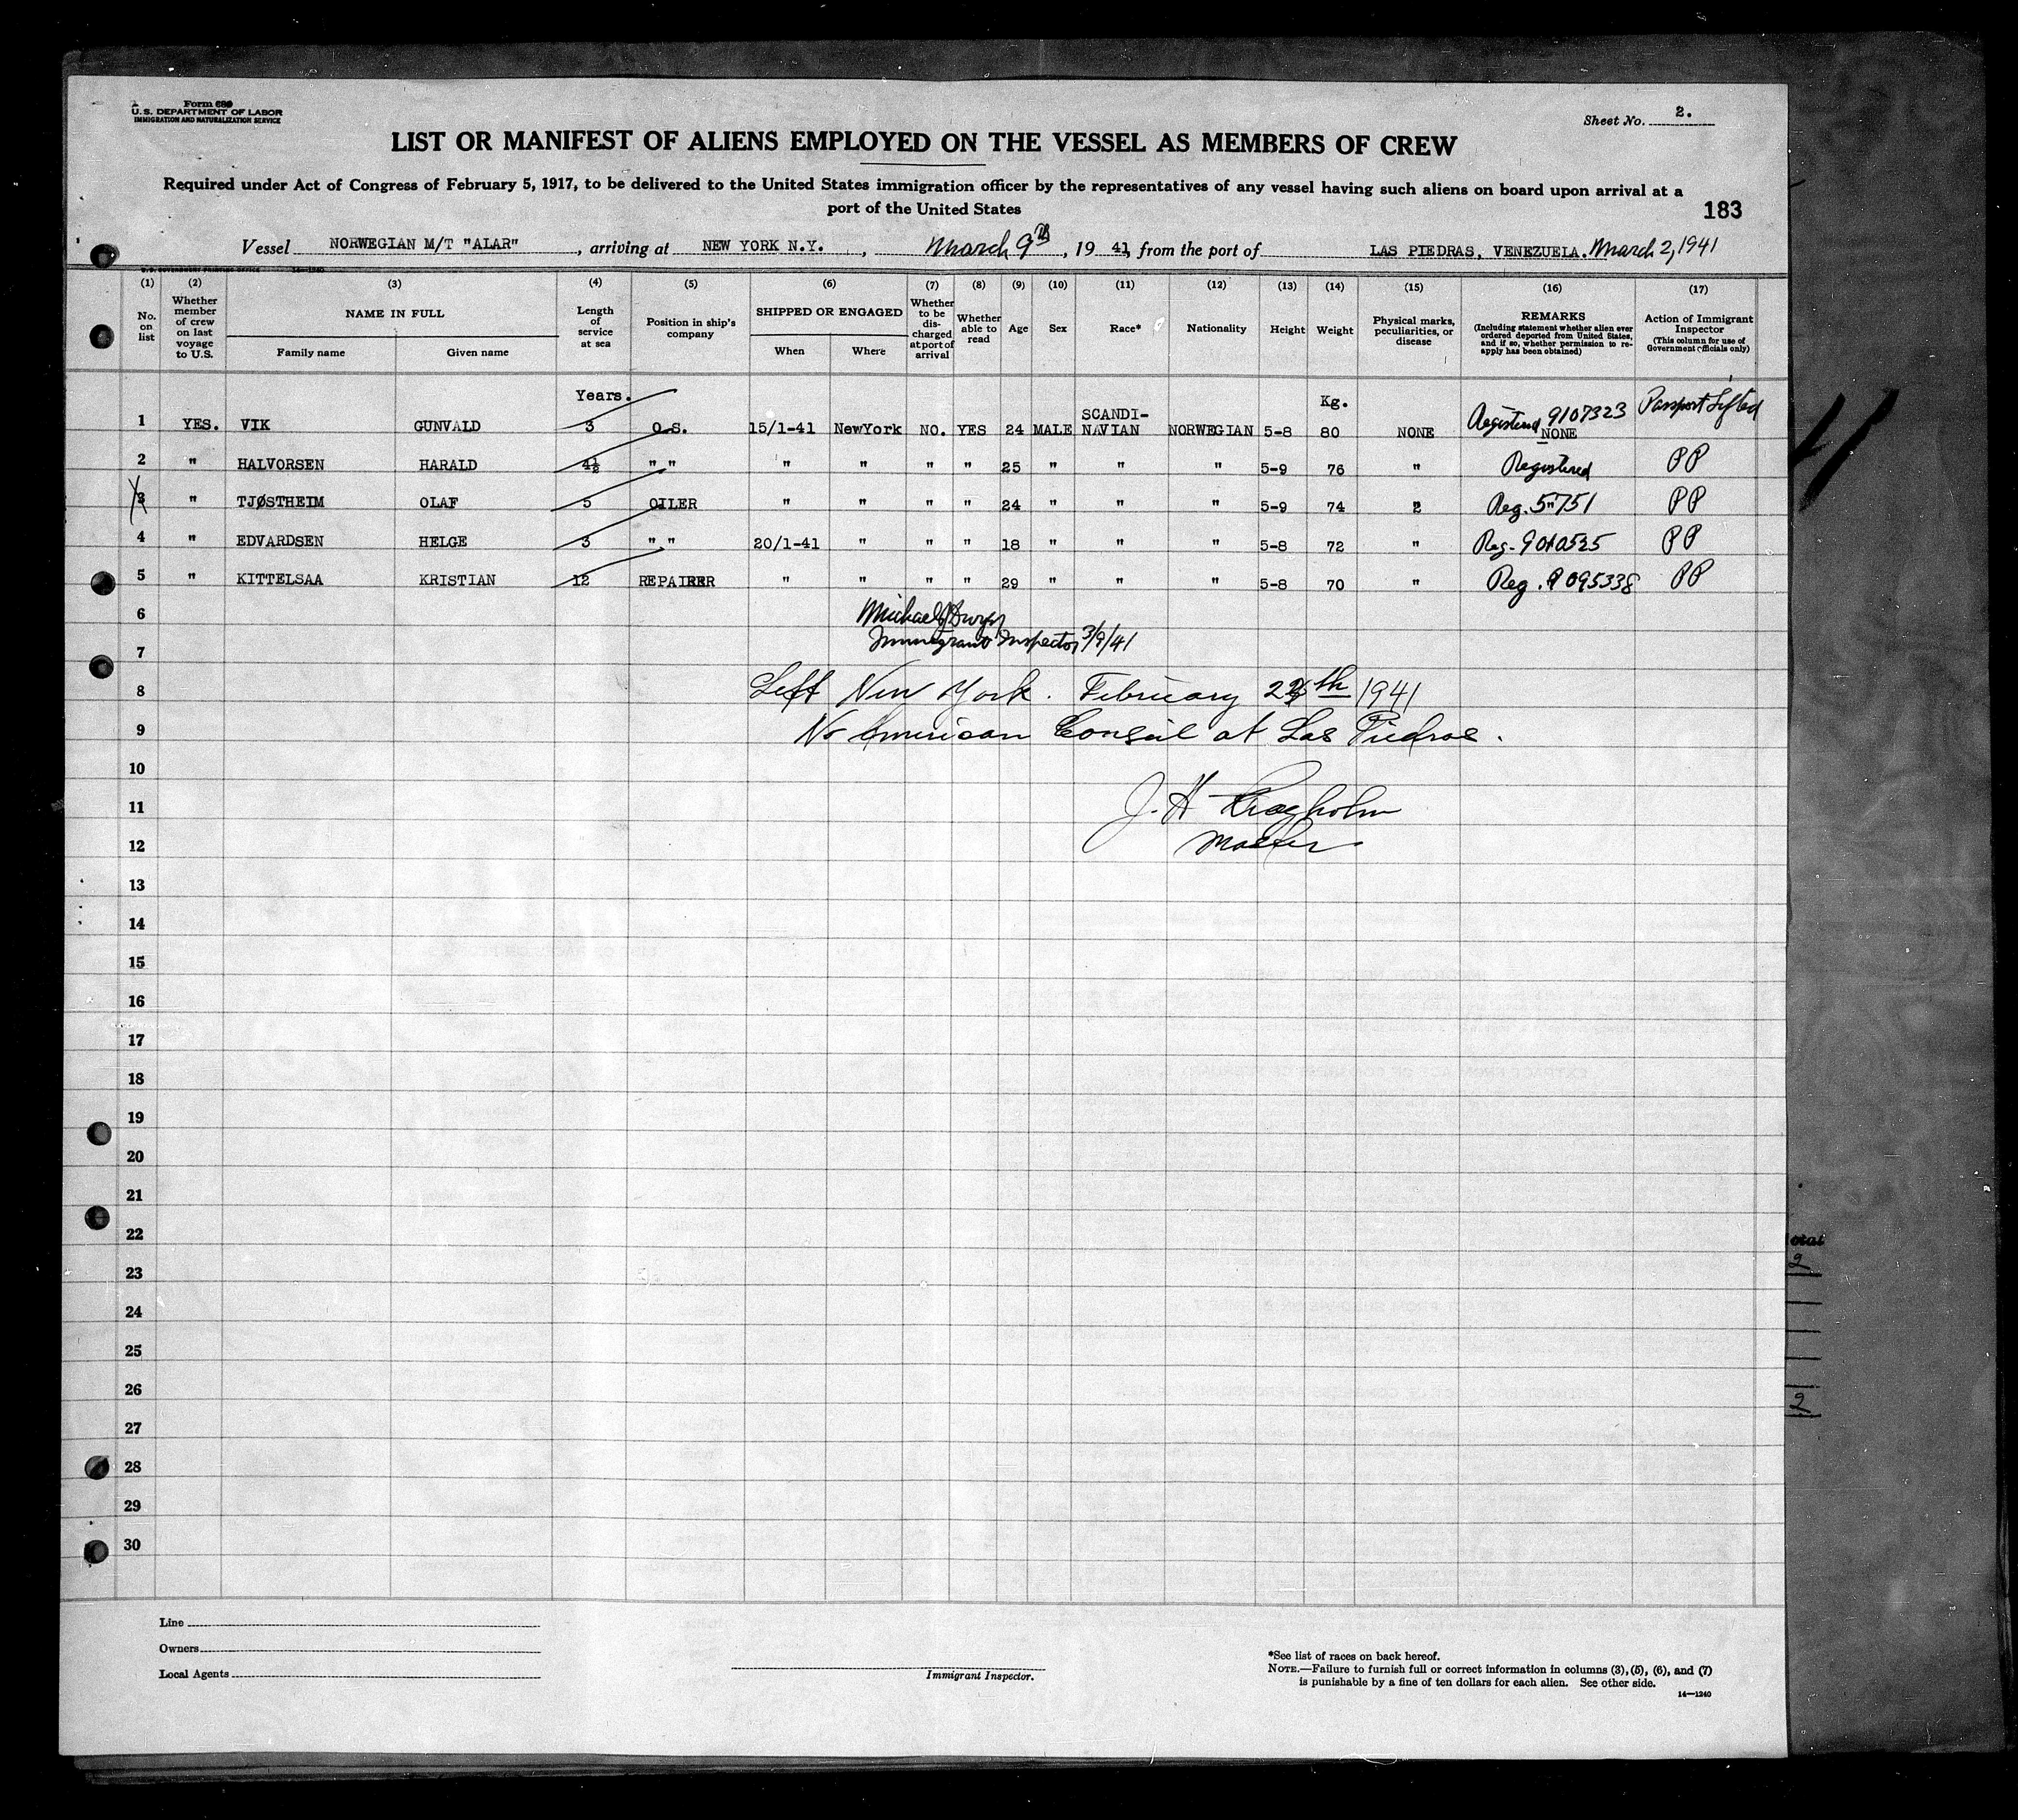 Form 680
U.S. DEPARTMENT OF LABOR
IMMIGRATION AND NATURALIZATION SERVICE
Sheet No. 2.
LIST OR MANIFEST OF ALIENS EMPLOYED ON THE VESSEL AS MEMBERS OF CREW
Required under Act of Congress of February 5, 1917, to be delivered to the United States immigration officer by the representatives of any vessel having such aliens on board upon arrival at a
port of the United States
183
Vessel NORWEGIAN M/T "ALAR", arriving at NEW YORK N.Y., March 9th, 1941, from the port of LAS PIEDRAS, VENEZUELA. March 2, 1941
U.S. GOVERNMENT PRINTING OFFICE 14-1240
(1) No. on list
(2) Whether member of crew on last voyage to U.S.
(3) NAME IN FULL
Family name
Given name
(4) Length of service at sea
(5) Position in ship's company
(6) SHIPPED OR ENGAGED
When
Where
(7) Whether to be discharged at port of arrival
(8) Whether able to read
(9) Age
(10) Sex
(11) Race*
(12) Nationality
(13) Height
(14) Weight
(15) Physical marks, peculiarities, or disease
(16) REMARKS (Including statement whether alien ever ordered deported from United States, and if so, whether permission to re-apply has been obtained)
(17) Action of Immigrant Inspector (This column for use of Government officials only)
Years. Kg.
1 YES. VIK GUNVALD 3 O.S. 15/1-41 NewYork NO. YES 24 MALE SCANDI-NAVIAN NORWEGIAN 5-8 80 NONE Registered 9107323 NONE Passport Lifted
2 " HALVORSEN HARALD 4½ " " " " " " 25 " " " 5-9 76 " Registered PP
3 " TJØSTHEIM OLAF 5 OILER " " " " 24 " " " 5-9 74 " Reg. 5751 PP
4 " EDVARDSEN HELGE 3 " " 20/1-41 " " " 18 " " " 5-8 72 " Reg. 9010525 PP
5 " KITTELSAA KRISTIAN 12 REPAIRER " " " " 29 " " " 5-8 70 " Reg. 9095338 PP
6 Michael
Immigrant Inspector 3/9/41
7
8 Left New York. February 24th 1941
9 No American Consul at Las Piedras.
10
11 J. H. Krogholm
12 Master
13
14
15
16
17
18
19
20
21
22
23
24
25
26
27
28
29
30
otal
2
2
Line
Owners
Local Agents
Immigrant Inspector.
*See list of races on back hereof.
NOTE.—Failure to furnish full or correct information in columns (3), (5), (6), and (7)
is punishable by a fine of ten dollars for each alien. See other side.
14—1240